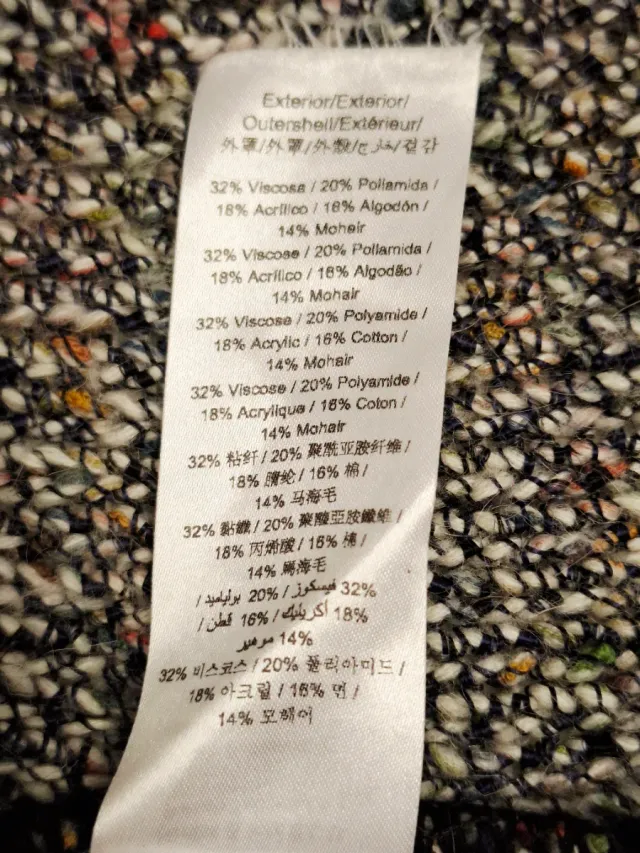 Exterior/Exterior/
Outershell/Extérieur/
外罩/外罩/外殼/خارجي/겉감
32% Viscosa / 20% Poliamida /
18% Acrílico / 16% Algodón /
14% Mohair
32% Viscose / 20% Poliamida /
18% Acrílico / 16% Algodão /
14% Mohair
32% Viscose / 20% Polyamide /
18% Acrylic / 16% Cotton /
14% Mohair
32% Viscose / 20% Polyamide /
18% Acrylique / 16% Coton /
14% Mohair
32% 粘纤 / 20% 聚酰亚胺纤维 /
18% 腈纶 / 16% 棉 /
14% 马海毛
32% 黏纖 / 20% 聚醯亞胺纖維 /
18% 丙烯酸 / 16% 棉 /
14% 馬海毛
32% فيسكوز / 20% برلياميد /
18% أكريليك / 16% قطن /
14% موهير
32% 비스코스 / 20% 폴리아미드 /
18% 아크릴 / 16% 면 /
14% 모헤어